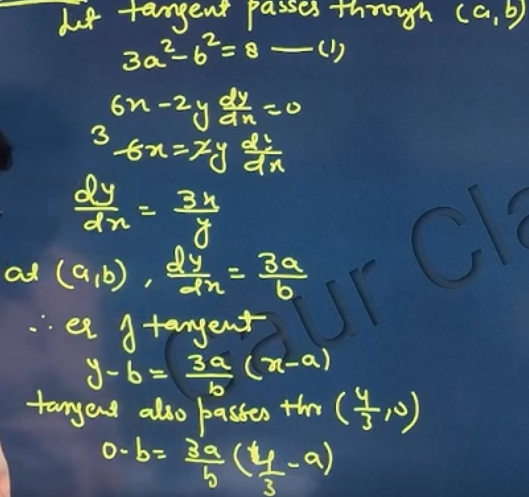 Let tangent passes through (a,b)
3a²-b²=8 —(1)
6x-2y dy/dx =0
3 6x=2y dy/dx
dy/dx = 3x/y
at (a,b), dy/dx = 3a/b
∴ eq of tangent
y-b= 3a/b (x-a)
tangent also passes thro (4/3,0)
0-b= 3a/b (4/3-a)
Gaur Cla